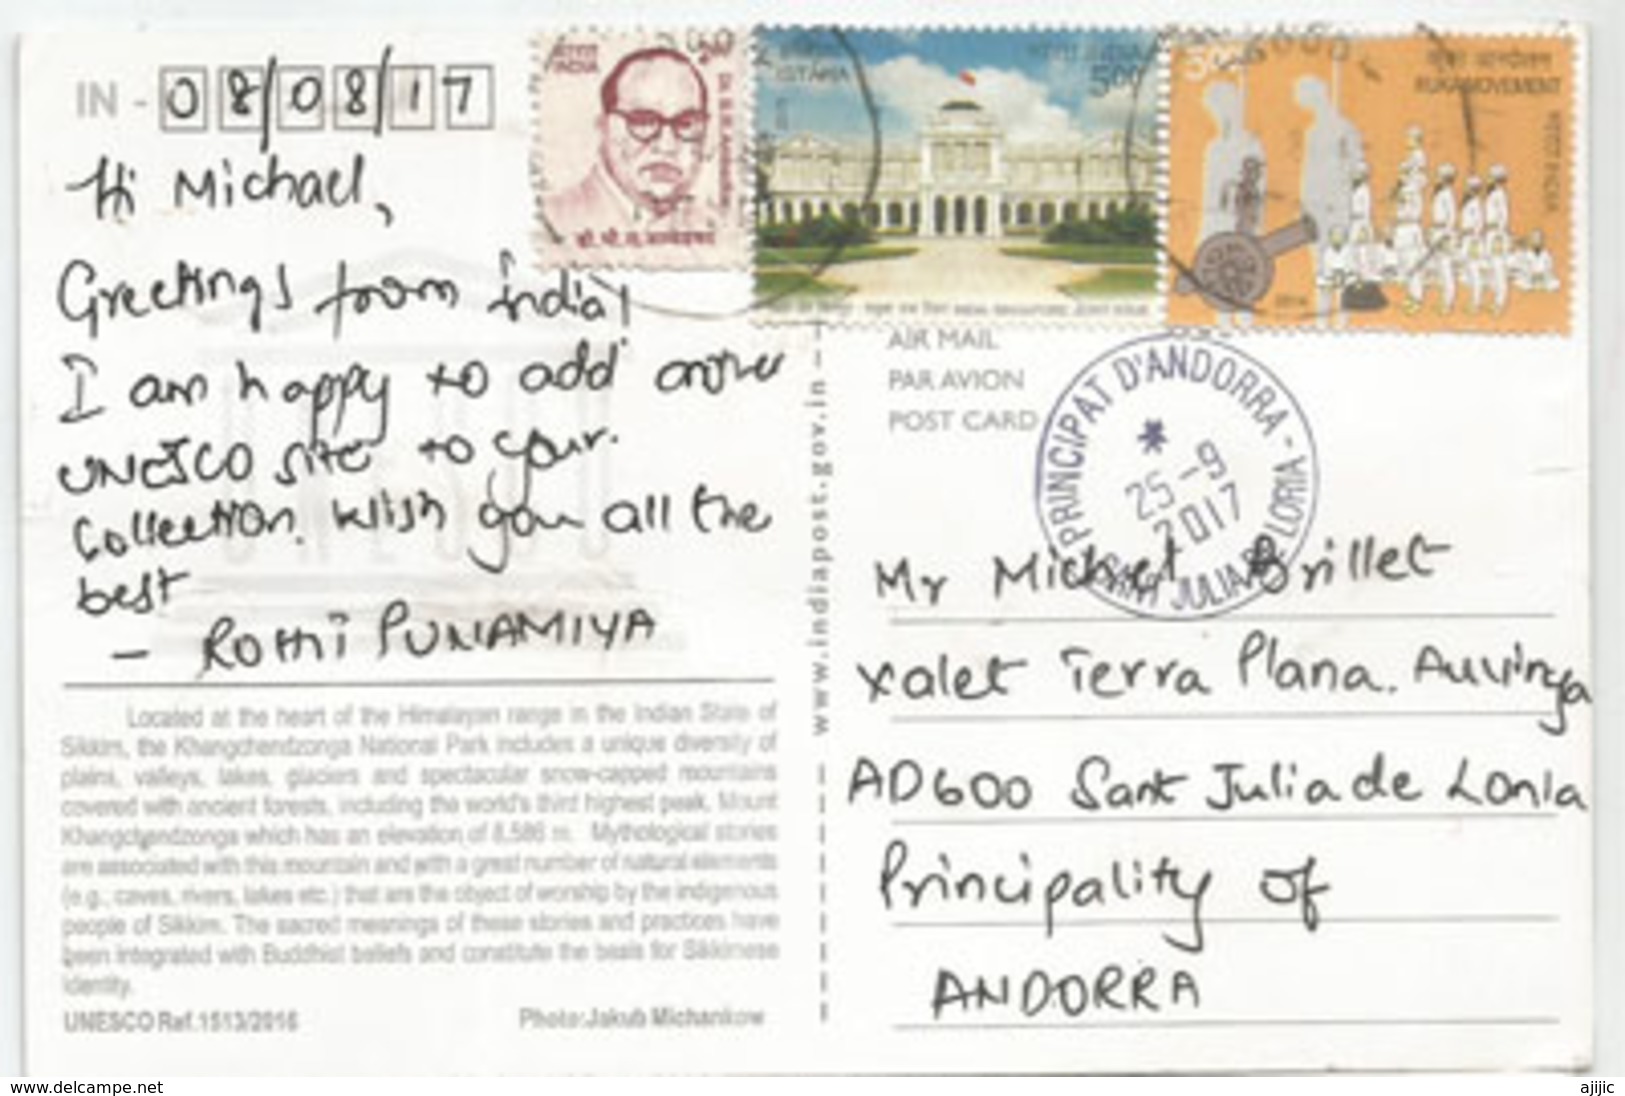 IN - 08/08/17
Hi Michael,
Greetings from India!
I am happy to add another
UNESCO site to your
collection. Wish you all the
best
- ROHI PUNAMIYA
Located at the heart of the Himalayan range in the Indian State of
Sikkim, the Khangchendzonga National Park includes a unique diversity of
plains, valleys, lakes, glaciers and spectacular snow-capped mountains
covered with ancient forests, including the world's third highest peak, Mount
Khangchendzonga which has an elevation of 8,586 m. Mythological stories
are associated with this mountain and with a great number of natural elements
(e.g., caves, rivers, lakes etc.) that are the object of worship by the indigenous
people of Sikkim. The sacred meanings of these stories and practices have
been integrated with Buddhist beliefs and constitute the basis for Sikkimese
identity.
UNESCO Ref.1513/2016 Photo:Jakub Michankow
www.indiapost.gov.in
भारत
INDIA
ISTANA
5.00
5.00
RUKA MOVEMENT
भारत INDIA
2014
AIR MAIL
PAR AVION
POST CARD
PRINCIPAT D'ANDORRA - SANT JULIA DE LORIA
25-9
2017
Mr Michel Brillet
Xalet Terra Plana. Auvinya
AD600 Sant Julia de Loria
Principality of
ANDORRA
www.delcampe.net
ajijic